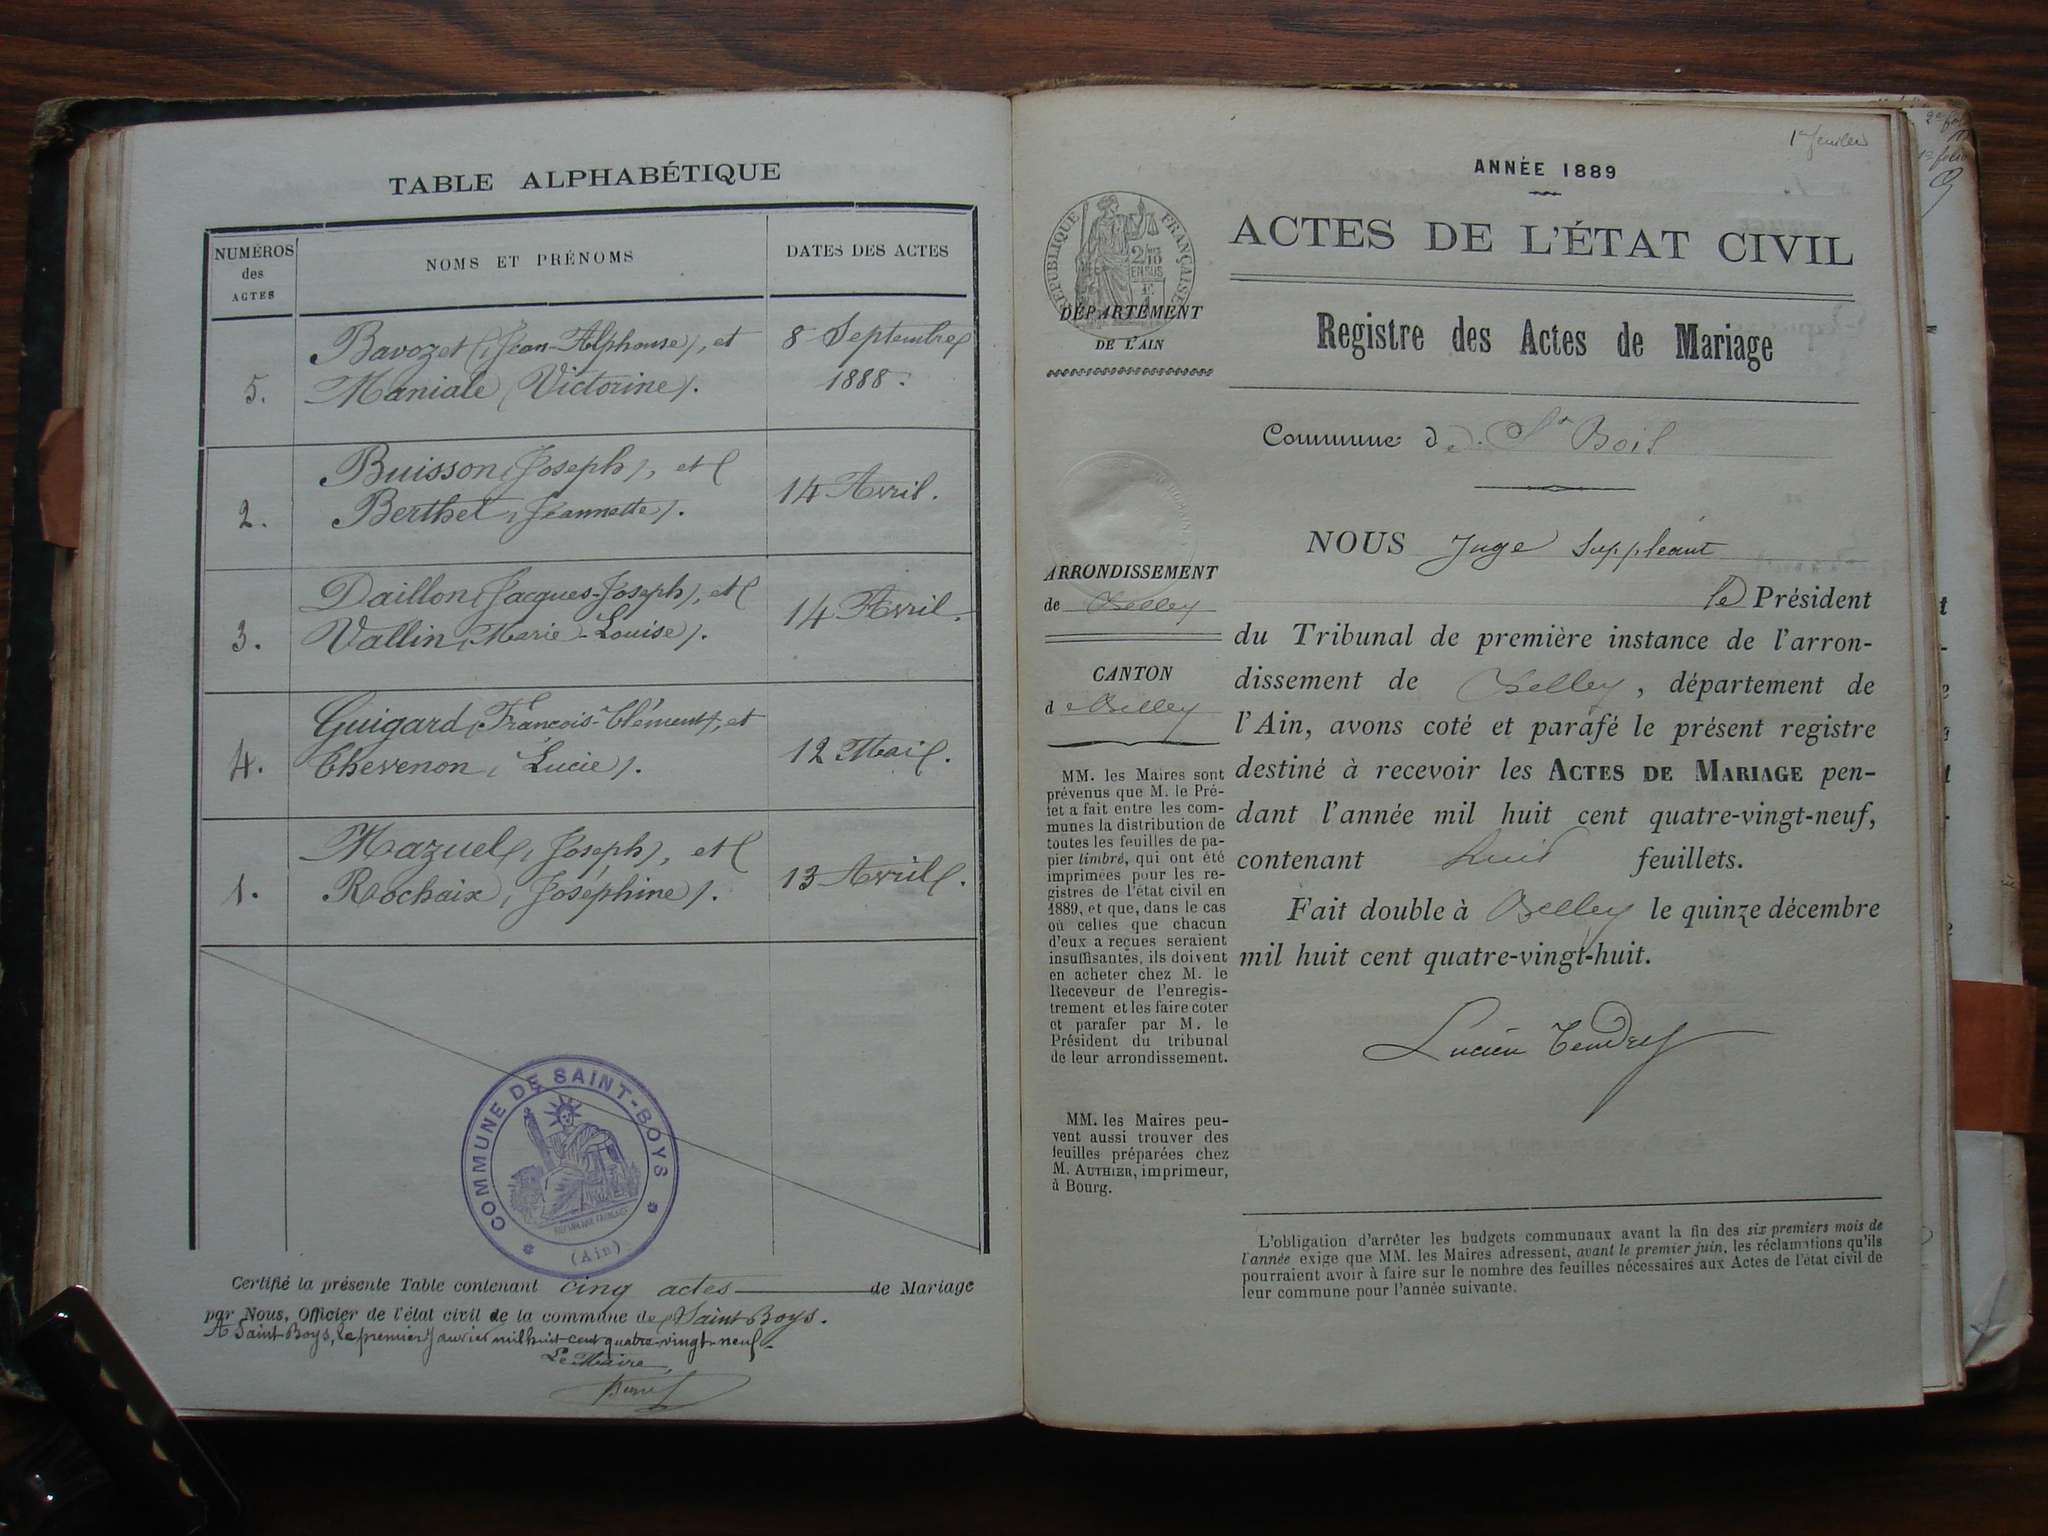 TABLE ALPHABÉTIQUE
NUMÉROS
des
ACTES
NOMS ET PRÉNOMS
DATES DES ACTES
5.
Bavozet (Jean-Alphonse), et
Maniale (Victorine).
8 Septembre
1888.
2.
Buisson (Joseph), et
Berthet (Jeannette).
14 Avril.
3.
Daillon (Jacques-Joseph), et
Vallin (Marie-Louise).
14 Avril.
4.
Guigard (François-Clément), et
Chevenon (Lucie).
12 Mai.
1.
Mazuel (Joseph), et
Rochaix (Joséphine).
13 Avril.
COMMUNE DE SAINT-BOYS
RÉPUBLIQUE FRANÇAISE
(Ain)
Certifié la présente Table contenant cinq actes de Mariage
par Nous, Officier de l'état civil de la commune de Saint-Boys.
A Saint-Boys, le premier Janvier mil huit cent quatre-vingt-neuf.
Le Maire,
1er feuillet
ANNÉE 1889
ACTES DE L'ÉTAT CIVIL
Registre des Actes de Mariage
RÉPUBLIQUE FRANÇAISE
2/10
EN SUS
DÉPARTEMENT
DE L'AIN
Commune d de St Bois
NOUS Juge Suppléant
le Président
du Tribunal de première instance de l'arron-
dissement de Belley, département de
l'Ain, avons coté et parafé le présent registre
destiné à recevoir les ACTES DE MARIAGE pen-
dant l'année mil huit cent quatre-vingt-neuf,
contenant huit feuillets.
Fait double à Belley le quinze décembre
mil huit cent quatre-vingt-huit.
Lucien Tendret
ARRONDISSEMENT
de Belley
CANTON
d e Belley
MM. les Maires sont
prévenus que M. le Pré-
fet a fait entre les com-
munes la distribution de
toutes les feuilles de pa-
pier timbré, qui ont été
imprimées pour les re-
gistres de l'état civil en
1889, et que, dans le cas
où celles que chacun
d'eux a reçues seraient
insuffisantes, ils doivent
en acheter chez M. le
Receveur de l'enregis-
trement et les faire coter
et parafer par M. le
Président du tribunal
de leur arrondissement.
MM. les Maires peu-
vent aussi trouver des
feuilles préparées chez
M. AUTHIER, imprimeur,
à Bourg.
L'obligation d'arrêter les budgets communaux avant la fin des six premiers mois de
l'année exige que MM. les Maires adressent, avant le premier juin, les réclamations qu'ils
pourraient avoir à faire sur le nombre des feuilles nécessaires aux Actes de l'état civil de
leur commune pour l'année suivante.